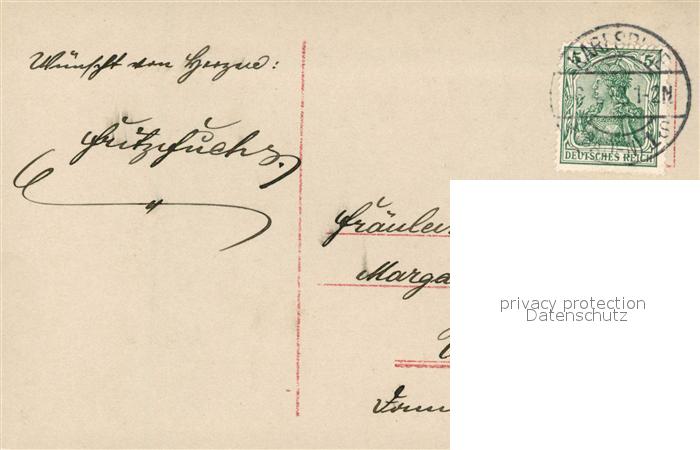 Wünscht von Herzen:
Fritz Fuchs.
KARLSRUHE
5 5
1-2N.
DEUTSCHES REICH
Fräulein
Marga
privacy protection
Datenschutz